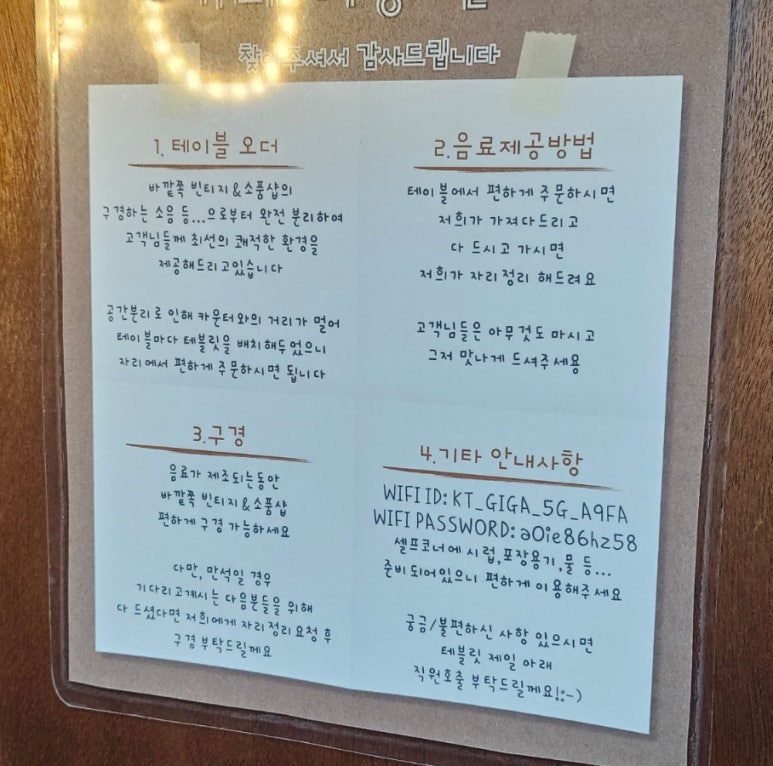 찾아주셔서 감사드립니다
1. 테이블 오더
바깥쪽 빈티지&소품샵의
구경하는 소음 등...으로부터 완전 분리하여
고객님들께 최선의 쾌적한 환경을
제공해드리고있습니다
공간분리로 인해 카운터와의 거리가 멀어
테이블마다 테블릿을 배치해두었으니
자리에서 편하게 주문하시면 됩니다
2.음료제공방법
테이블에서 편하게 주문하시면
저희가 가져다드리고
다 드시고 가시면
저희가 자리정리 해드려요
고객님들은 아무것도 마시고
그저 맛나게 드셔주세용
3.구경
음료가 제조되는동안
바깥쪽 빈티지&소품샵
편하게 구경 가능하세요
다만, 만석일 경우
기다리고계시는 다음분들을 위해
다 드셨다면 저희에게 자리정리요청 후
구경 부탁드릴께요
4.기타 안내사항
WIFI ID: KT_GIGA_5G_A9FA
WIFI PASSWORD: a0ie86hz58
셀프코너에 시럽,포장용기,물 등...
준비되어있으니 편하게 이용해주세요
궁금/불편하신 사항 있으시면
테블릿 제일 아래
직원호출 부탁드릴께요!:-)